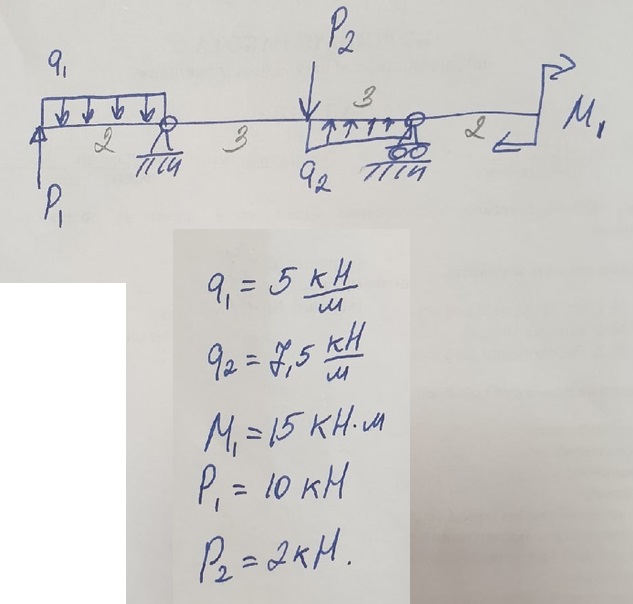 P₂
q₁
3
M₁
2
3
2
q₂
P₁
q₁ = 5 кН/м
q₂ = 7,5 кН/м
M₁ = 15 кН·м
P₁ = 10 кН
P₂ = 2 кН.